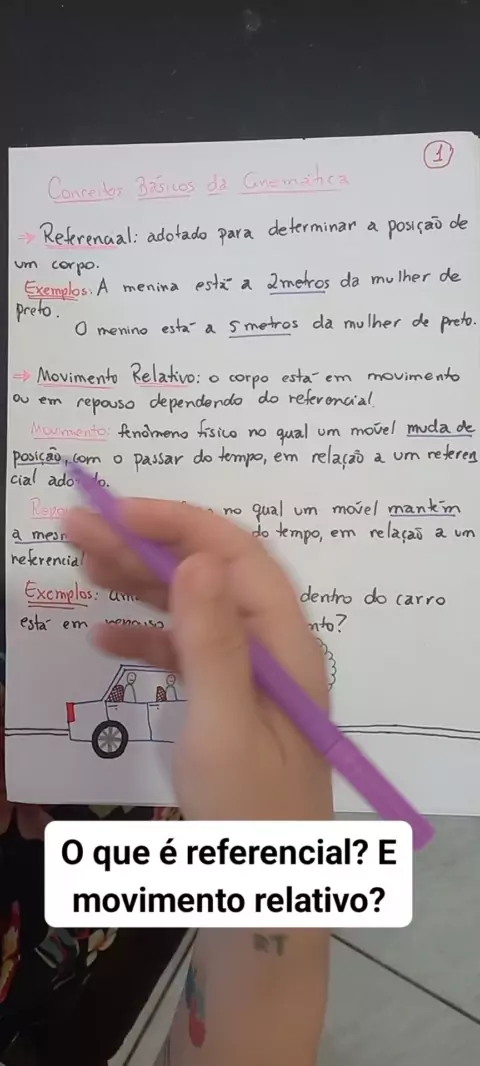 1
Conceitos Básicos da Cinemática
→ Referencial: adotado para determinar a posição de
um corpo.
Exemplos: A menina está a 2 metros da mulher de
preto.
O menino está a 5 metros da mulher de preto.
→ Movimento Relativo: o corpo está em movimento
ou em repouso dependendo do referencial.
Movimento: fenômeno físico no qual um móvel muda de
posição, com o passar do tempo, em relação a um referen
cial
no qual um móvel mantém
a do tempo, em relação a um
referencial
Exemplos: dentro do carro
está em repouso
O que é referencial? E
movimento relativo?
RT